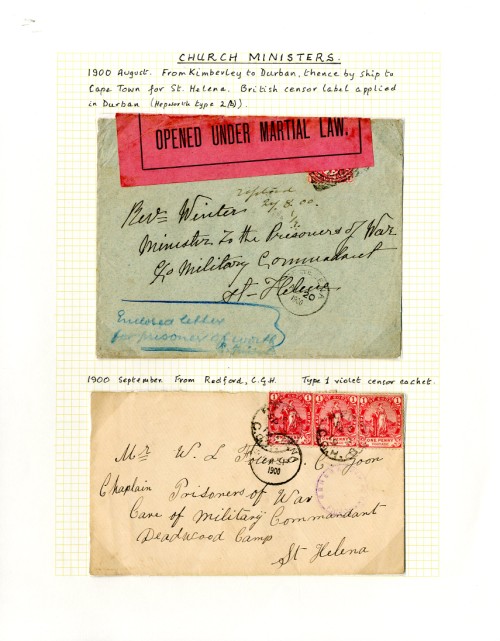 CHURCH MINISTERS.
1900 August. From Kimberley to Durban, thence by ship to
Cape Town for St. Helena. British censor label applied
in Durban (Hepworth type 2(b)).
OPENED UNDER MARTIAL LAW.
replied
29/8.00.
Revn Winter
Minister to the Prisoners of War
C/o Military Commandant
St Helena
20
1900
Enclosed letter
for prisoner of war
1900 September. From Redford, C.G.H. Type 1 violet censor cachet.
1 1 1 1 1 1
ONE PENNY ONE PENNY
1900
Mr W. L
Zoon
Chaplain Prisoners of War
Care of Military Commandant
Deadwood Camp
St Helena